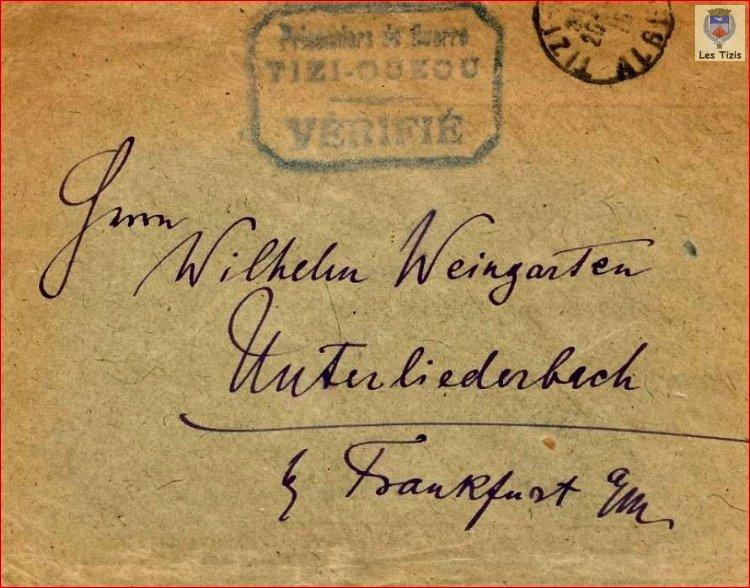 Prisonniers de Guerre
TIZI-OUZOU
VÉRIFIÉ
TIZI-
ALGER
Les Tizis
Herrn
Wilhelm Weingarten
Unterliederbach
b/ Frankfurt a/M